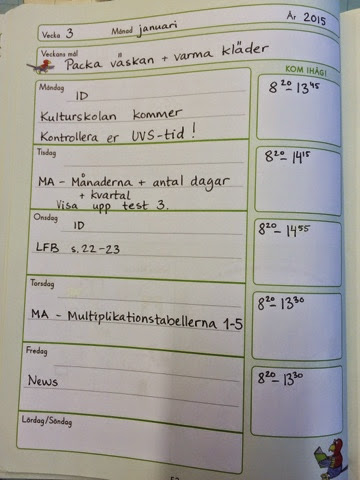 Vecka 3 Månad januari År 2015
Veckans mål
Packa väskan + varma kläder
KOM IHÅG!
Måndag
ID
Kulturskolan kommer
Kontrollera er UVS-tid!
8 20 – 13 45
Tisdag
MA – Månaderna + antal dagar
+ kvartal
Visa upp test 3.
8 20 – 14 15
Onsdag
ID
LFB s. 22-23
8 20 – 14 55
Torsdag
MA – Multiplikationstabellerna 1-5
8 20 – 13 30
Fredag
News
8 20 – 13 30
Lördag/Söndag